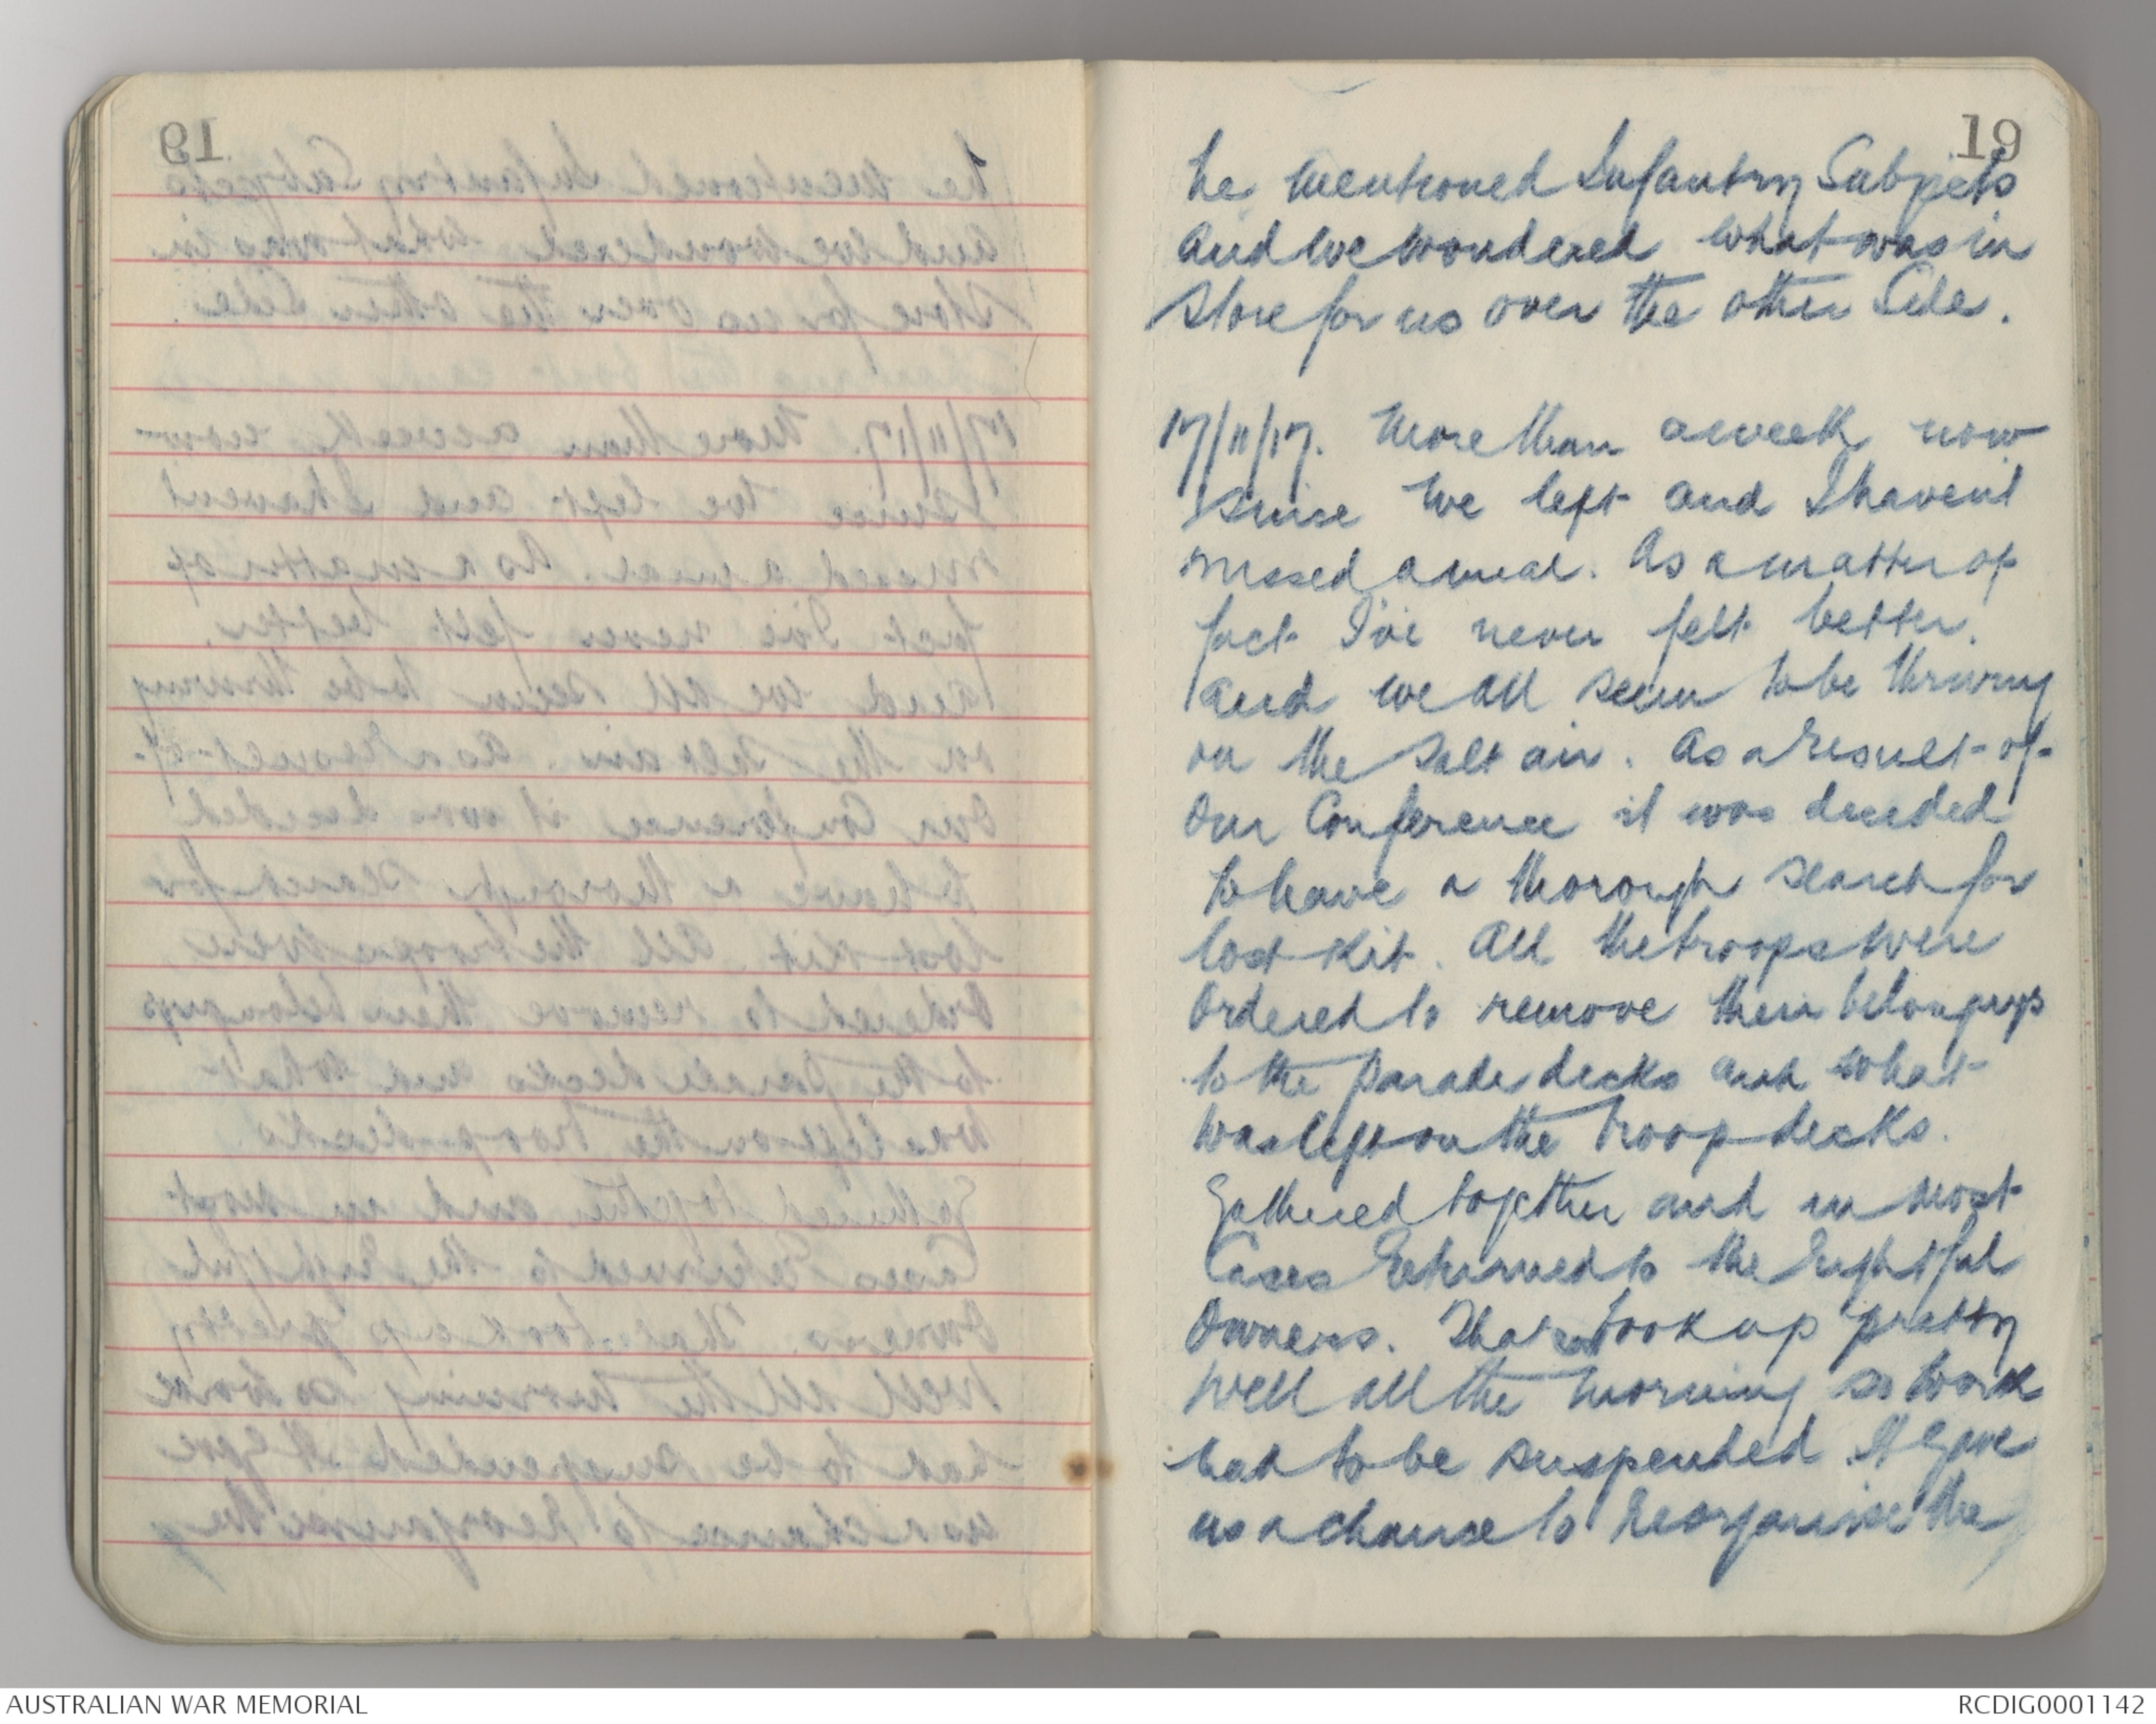 19
he mentioned Infantry Subjects
and we wondered what was in
store for us over the other Side.
17/11/17. More than a week now
since we left and I havent
missed a meal. As a matter of
fact I've never felt better.
and we all seem to be thriving
on the salt air. As a result of
our Conference it was decided
to have a thorough search for
lost Kit. All the troops were
ordered to remove their belongings
to the parade decks and what
was left on the troop decks.
Gathered together and in most
Cases Returned to the Rightful
Owners. That took up pretty
well all the morning so work
had to be suspended. It gave
us a chance to Reorganise the
AUSTRALIAN WAR MEMORIAL
RCDIG0001142